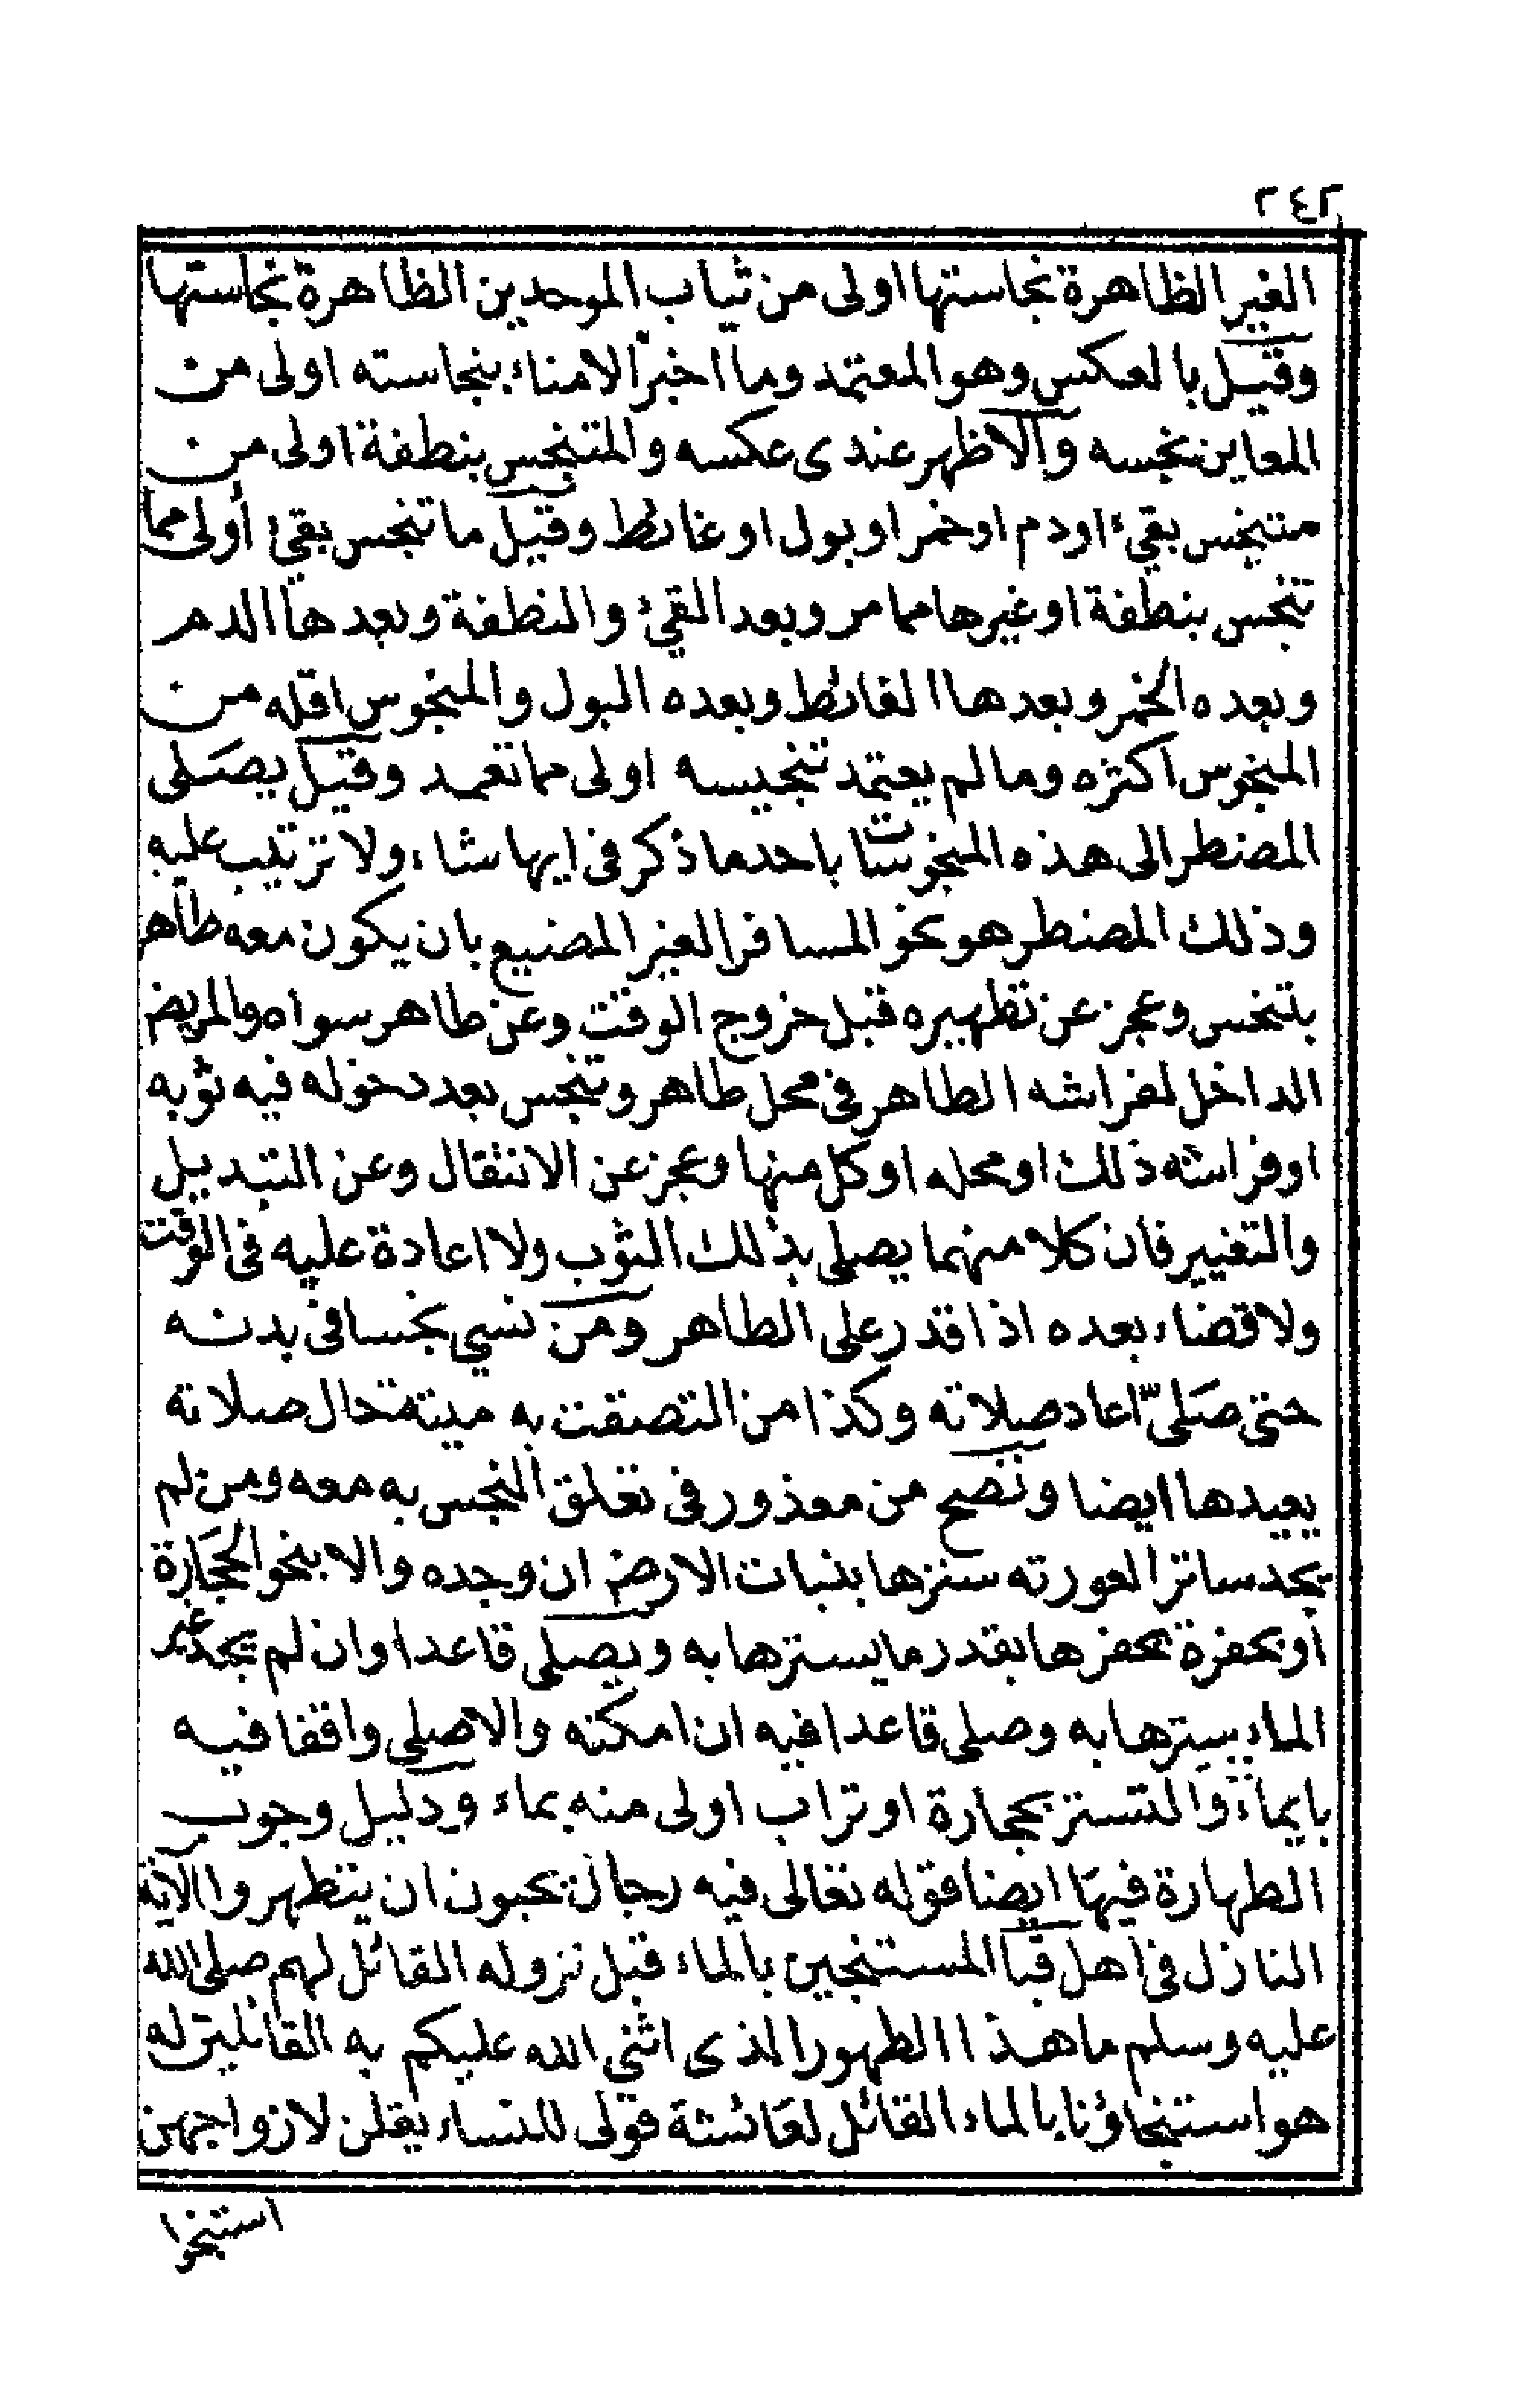 ٢٤٢
الغير الظاهرة نجاستها اولى من ثياب الموحدين الظاهرة نجاستها
وقيل بالعكس وهو المعتمد وما اخبر الامناء بنجاسته اولى من
المعاين نجسه والاظهر عندى عكسه والمتنجس بنطفة اولى من
متنجس بقيء او دم او خمر او بول او غائط وقيل ما تنجس بقيء أولى مما
تنجس بنطفة او غيرها مما مر وبعد القيء والنطفة وبعدها الدم
وبعده الخمر وبعدها الغائط وبعده البول والمنجوس اقله من
المنجوس اكثره وما لم يعتمد تنجيسه اولى مما تعمد وقيل يصَلى
المضطر الى هذه المنجوسات باحدما ذكر فى ايها شاء ولا ترتيب عليه
وذلك المضطر هو نحو المسافر الغير المضيع بان يكون معه طاهر
بتنجس وعجز عن تطهيره قبل خروج الوقت وعن طاهر سواه والمريض
الداخل لفراشه الطاهر فى محل طاهر وتنجس بعد دخوله فيه ثوبه
او فراشه ذلك او محله او كل منها وعجز عن الانتقال وعن التبديل
والتغيير فان كلا منهما يصلى بذلك الثوب ولا اعادة عليه فى الوقت
ولا قضاء بعده اذا قدر على الطاهر ومن نسي نجسا فى بدنه
حتى صَلىّ اعاد صلاته وكذا من التصقت به ميتة حال صلاته
يعيدها ايضا وتصح من معذور فى تعلق النجس به معه ومن لم
يجد ساترا لعورته سترها بنبات الارض ان وجده والا بنحو الحجَارة
او بحفرة يحفرها بقدر ما يسترها به ويصلى قاعدا وان لم يجد غير
الماء يسترها به وصلى قاعدا فيه ان امكنه والا صلى واقفا فيه
بايماء والتستر بحجارة او تراب اولى منه بماء ودليل وجوب
الطهارة فيهَا ايضا قوله تعالى فيه رجال يحبون ان يتطهروا الآية
النازل فى اهل قبا المستنجين بالماء قبل نزوله القائل لهم صلى الله
عليه وسلم ما هذا الطهور الذى اثنى الله عليكم به القائلين له
هو استنجاؤنا بالماء القائل لعَائشة قولى للنساء يقلن لازواجهن
استنجوا